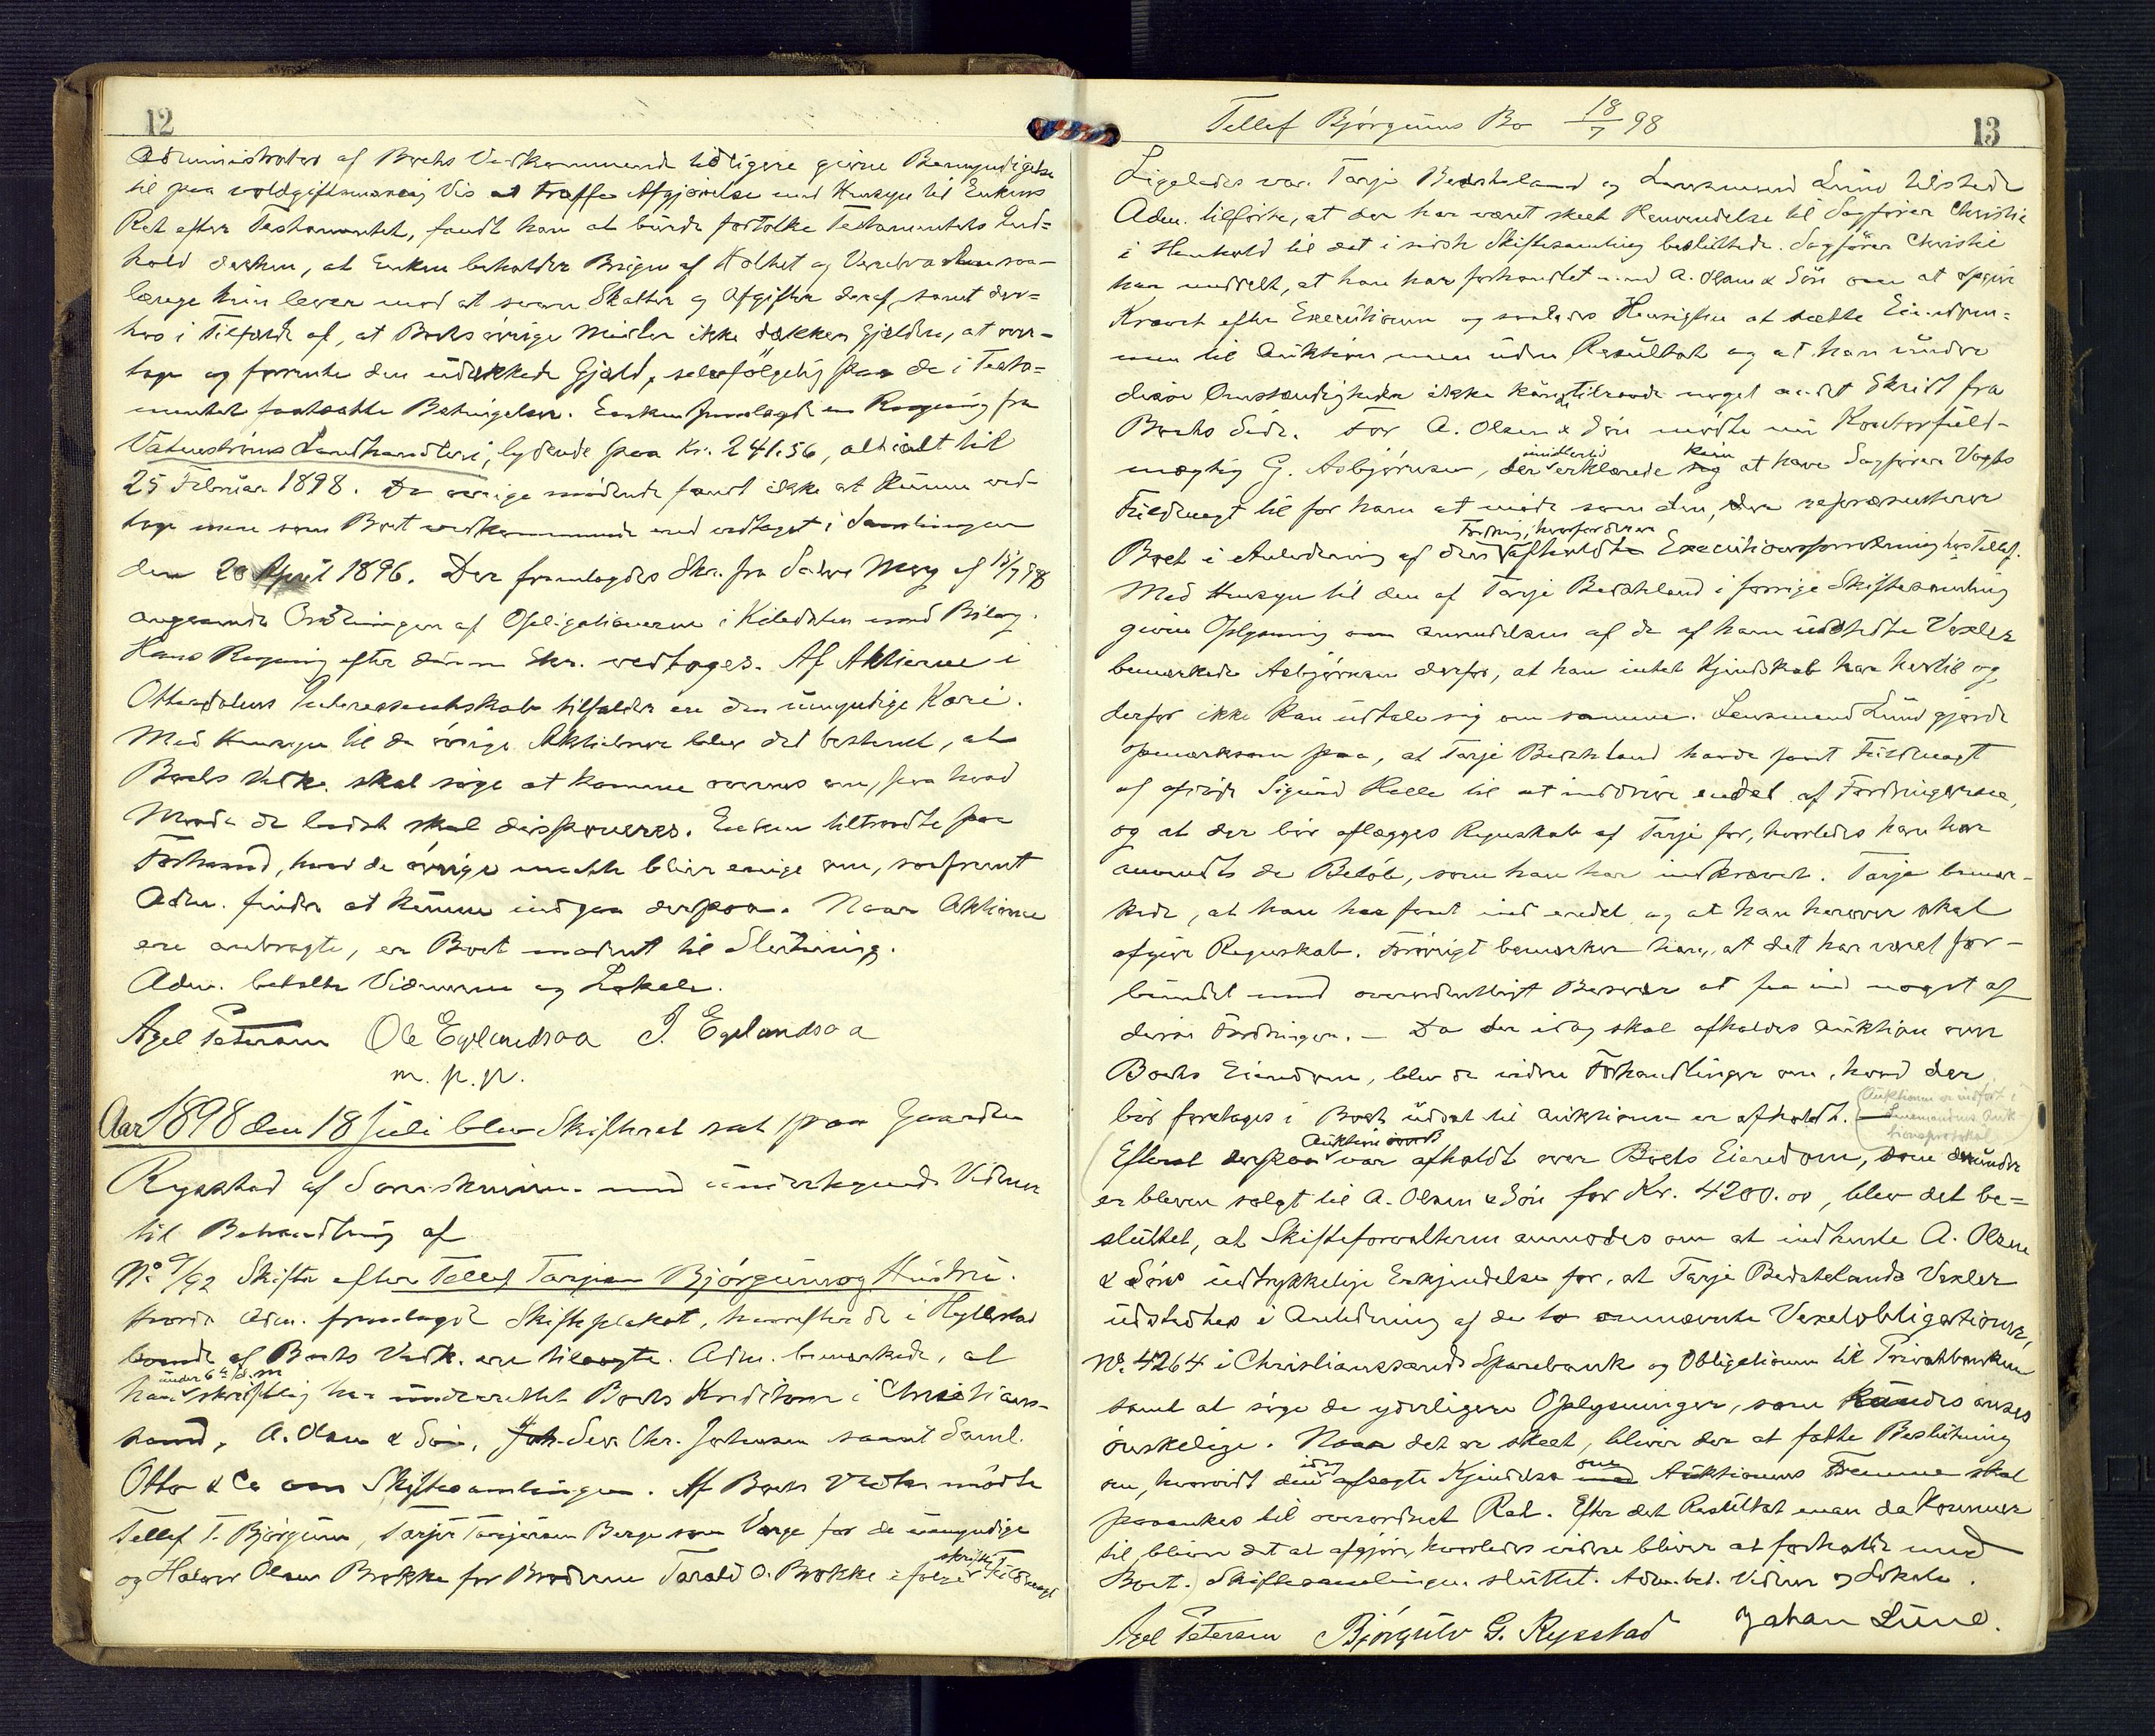 12
Administrator af Boets Vedkommende tidligere givne Bemyndigelse
til paa voldgiftsmæssig Vis at træffe Afgjørelse med Hensyn til Enkens
Ret efter Testamentet, fandt han at burde fortolke Testamentets Ind=
hold derhen, at Enken beholder Brugen af Holtet og saa-
længe hun lever mod at svare Skatter og Afgifter deraf, samt der=
hos i Tilfælde af, at Boets øvrige Midler ikke dækker Gjælden, at over-
tage og forrente den udækkede Gjæld, selvfølgelig paa de i Testa=
mentet fastsatte Betingelser. Enken fremlagde en Regning fra
Vatnestrøms Landhandleri, lydende paa Kr. 241.56, alt ialt til
25 Februar 1898. De øvrige mødende fandt ikke at kunne ved-
tage mere som Boet vedkommende end vedtaget i Samlingen
den 20 April 1896. Der fremlagdes Skr. fra af 15/7 98
angaaende af Obligationerne i med Bilag.
Hans Regning efter denne Skr. vedtoges. Af Aktierne i
Otteraadalens Interessentskab tilfalder en den umyndige Kari.
Med Hensyn til de øvrige Aktiebreve blev det bestemt, at
Boets Vedk. skal søge at komme overens om, paa hvad
Maade de bedst skal disponeres. Enken tiltraadte paa
Forhaand, hvad de øvrige maatte blive enige om, saafremt
Adm. finder at kunne indgaa derpaa. Naar Aktierne
ere anbragte, er Boet modent til Slutning.
Adm. betalte Vidnerne og Lokale.
Axel Petersen Ole Eglandsaa J. Eglandsaa
m. p. p.
Aar 1898 den 18 Juli blev Skifteret sat paa Gaarden
Rysstad af Sorenskriveren med undertegnede Vidner
til Behandling af
No 9/92 Skifte efter Tellef Tarjeisen Bjørgum og Hustru.
Hvorda Adm. fremlagde Skifteplakat, hvorefter de i Hyllestad
boende af Boets Vedk. ere tilsagte. Adm. bemærkede, at
han under 6te d.m skriftlig har underrettet Boets Kreditorer i Christians-
sand, A. Olsen & Søn, Chr. Johnsen samt Saml.
Otto & Co om Skiftesamlingen. Af Boets Vedk. mødte
Tellef T. Bjørgum, Tarjei Tarjeisen Berge som Værge for de umyndige
og Halvor Olsen Brokke for Broderen Tarald O. Brokke i følge skriftl. Fuldmagt
Tellef Bjørgums Bo 18/7 98
13
Ligeledes var Tarje Besteland og Lensmand Lund tilstede
Adm. tilførte, at der har været skeet Henvendelse til Sagfører Christie
i Henhold til det i sidste Skiftesamling besluttede. Sagfører Christie
har meddelt, at han har forhandlet med A. Olsen & Søn om at opgive
Kravet efter Executionen og saaledes Hensigten at sætte Eiendom-
men til Auktion men uden Resultat og at han under
disse Omstændigheder ikke kunde tilraade noget andet Skridt fra
Boets Side. For A. Olsen & Søn mødte nu Kontorfuld-
mægtig G. Asbjørnsen, der imidlertid erklærede kun at have Sagfører Vogts
Fuldmagt til for ham at møde som den, der repræsenterer
Boet i Anledning af den Fordring, hvorfor der er afholdt Executionsforretning hos Tellef.
Med Hensyn til den af Tarje Besteland i forrige Skiftesamling
givne Oplysning om Anvendelsen af de af ham udstedte Vexler
bemærkede Asbjørnsen derfor, at han intet Kjendskab har hertil og
derfor ikke kan udtale sig om samme. Lensmand Lund gjorde
opmærksom paa, at Tarje Besteland havde faaet Fuldmagt
af afdøde Sigurd Helle til at inddrive endel af Fordringerne,
og at der bør aflægges Regnskab af Tarje for, hvorledes han har
anvendt de Beløb, som han har indkrævet. Tarje bemær-
kede, at han har faaet ind endel og at han herover skal
afgive Regnskab. Forøvrigt bemærker han, at det har været for-
bundet med overordentligt Besvær at faa ind noget af
disse Fordringer. — Da der idag skal afholdes Auktion over
Boets Eiendom, blev de videre Forhandlinger om, hvad der
bør foretages i Boet udsat til Auktionen er afholdt. —
(Auktionen er indført i
Lensmandens Auk-
tionsprotokol
Efterat derpaa Auktion var afholdt over Boets Eiendom, som derunder
er bleven solgt til A. Olsen & Søn for Kr. 4200.00, blev det be=
sluttet, at Skifteforvalteren anmodes om at indhente A. Olsen
& Søns udtrykkelige Erkjendelse for, at Tarje Bestelands Vexler
udstedtes i Anledning af de to omnævnte Vexelobligationer,
No. 4264 i Christianssands Sparebank og Obligationen til Privatbanken
samt at søge de yderligere Oplysninger, som kunde ansees
ønskelige. Naar det er skeet, bliver der at fatte Beslutning
om, hvorvidt den idag afsagte Kjendelse om Auktionens Fremme skal
paaankes til overordnet Ret. Efter det Resultat man da kommer
til, bliver det at afgjøre, hvorledes videre bliver at forholde med
Boet. Skiftesamlingen sluttet. Adm. bet. Vidner og Lokale.
Axel Petersen Bjørgulv G. Rysstad Johan Lund.